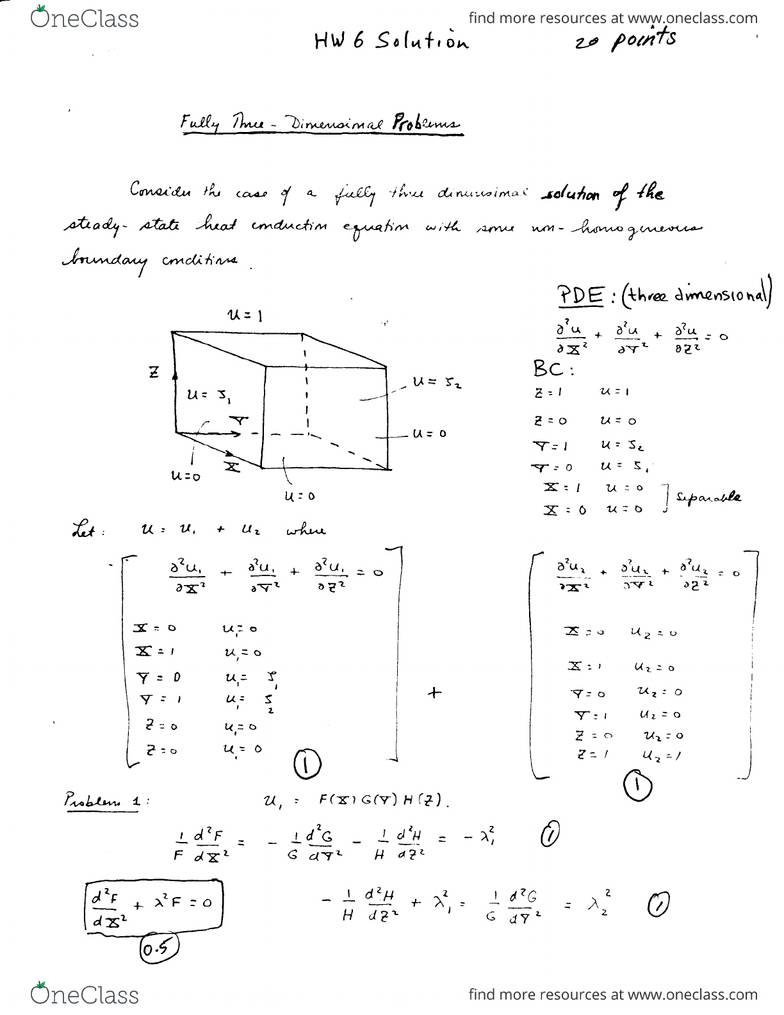 OneClass
find more resources at www.oneclass.com
HW 6 Solution 20 points
Fully Three-Dimensional Problems
Consider the case of a fully three dimensional solution of the
steady-state heat conduction equation with some non-homogeneous
boundary conditions.
PDE: (three dimensional)
∂²u/∂X² + ∂²u/∂Y² + ∂²u/∂Z² = 0
BC:
Z=1 u=1
Z=0 u=0
Y=1 u=ζ₂
Y=0 u=ζ₁
X=1 u=0
X=0 u=0
] separable
u=1
Z
u=ζ₁
Y
X
u=ζ₂
u=0
u=0
u=0
Let: u = u₁ + u₂ where
∂²u₁/∂X² + ∂²u₁/∂Y² + ∂²u₁/∂Z² = 0
X=0 u₁=0
X=1 u₁=0
Y=0 u₁=ζ₁
Y=1 u₁=ζ₂
Z=0 u₁=0
Z=0 u₁=0
①
+
∂²u₂/∂X² + ∂²u₂/∂Y² + ∂²u₂/∂Z² = 0
X=0 u₂=0
X=1 u₂=0
Y=0 u₂=0
Y=1 u₂=0
Z=0 u₂=0
Z=1 u₂=1
①
Problem 1: u₁ = F(X)G(Y)H(Z).
1/F d²F/dX² = - 1/G d²G/dY² - 1/H d²H/dZ² = -λ₁² ①
d²F/dX² + λ²F = 0
0.5
- 1/H d²H/dZ² + λ₁² = 1/G d²G/dY² = λ₂² ①
OneClass
find more resources at www.oneclass.com